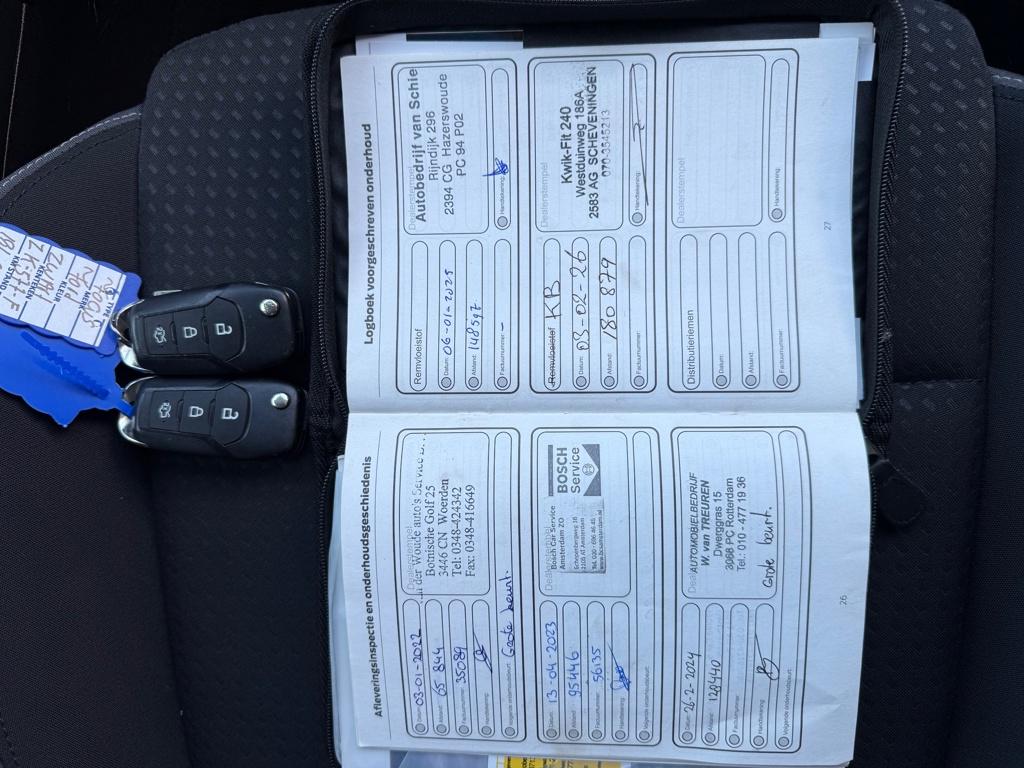 Afleveringsinspectie en onderhoudsgeschiedenis
Datum: 03-01-2022
Afstand: 65 844
Factuurnummer: 35089
Handtekening:
Volgende onderhoudsbeurt: Grote beurt.
Dealerstempel
der Woude auto's Service
Botnische Golf 25
3446 CN Woerden
Tel: 0348-424342
Fax: 0348-416649
Datum: 13-04-2023
Afstand: 95446
Factuurnummer: 56135
Handtekening:
Volgende onderhoudsbeurt:
Dealerstempel
Bosch Car Service
Amsterdam ZO
BOSCH
Service
Datum: 26-2-2024
Afstand: 128440
Factuurnummer:
Handtekening:
Volgende onderhoudsbeurt:
AUTOMOBIELBEDRIJF
W. van TREUREN
Dwerggras 15
3068 PC Rotterdam
Tel.: 010 - 477 19 36
Grote beurt.
26
Logboek voorgeschreven onderhoud
Remvloeistof
Datum: 06-01-2025
Afstand: 148597
Factuurnummer: -
Dealerstempel
Autobedrijf van Schie
Rijndijk 296
2394 CG Hazerswoude
PC 94 P02
Handtekening:
Remvloeistof KB
Datum: 03-02-26
Afstand: 180 879
Factuurnummer:
Dealerstempel
Kwik-Fit 240
Westduinweg 186A
2583 AG SCHEVENINGEN
070-3545213
Handtekening:
Distributieriemen
Datum:
Afstand:
Factuurnummer:
Dealerstempel
Handtekening:
27
MERK
TYPE
KLEUR
KENTEKEN
KM STAND